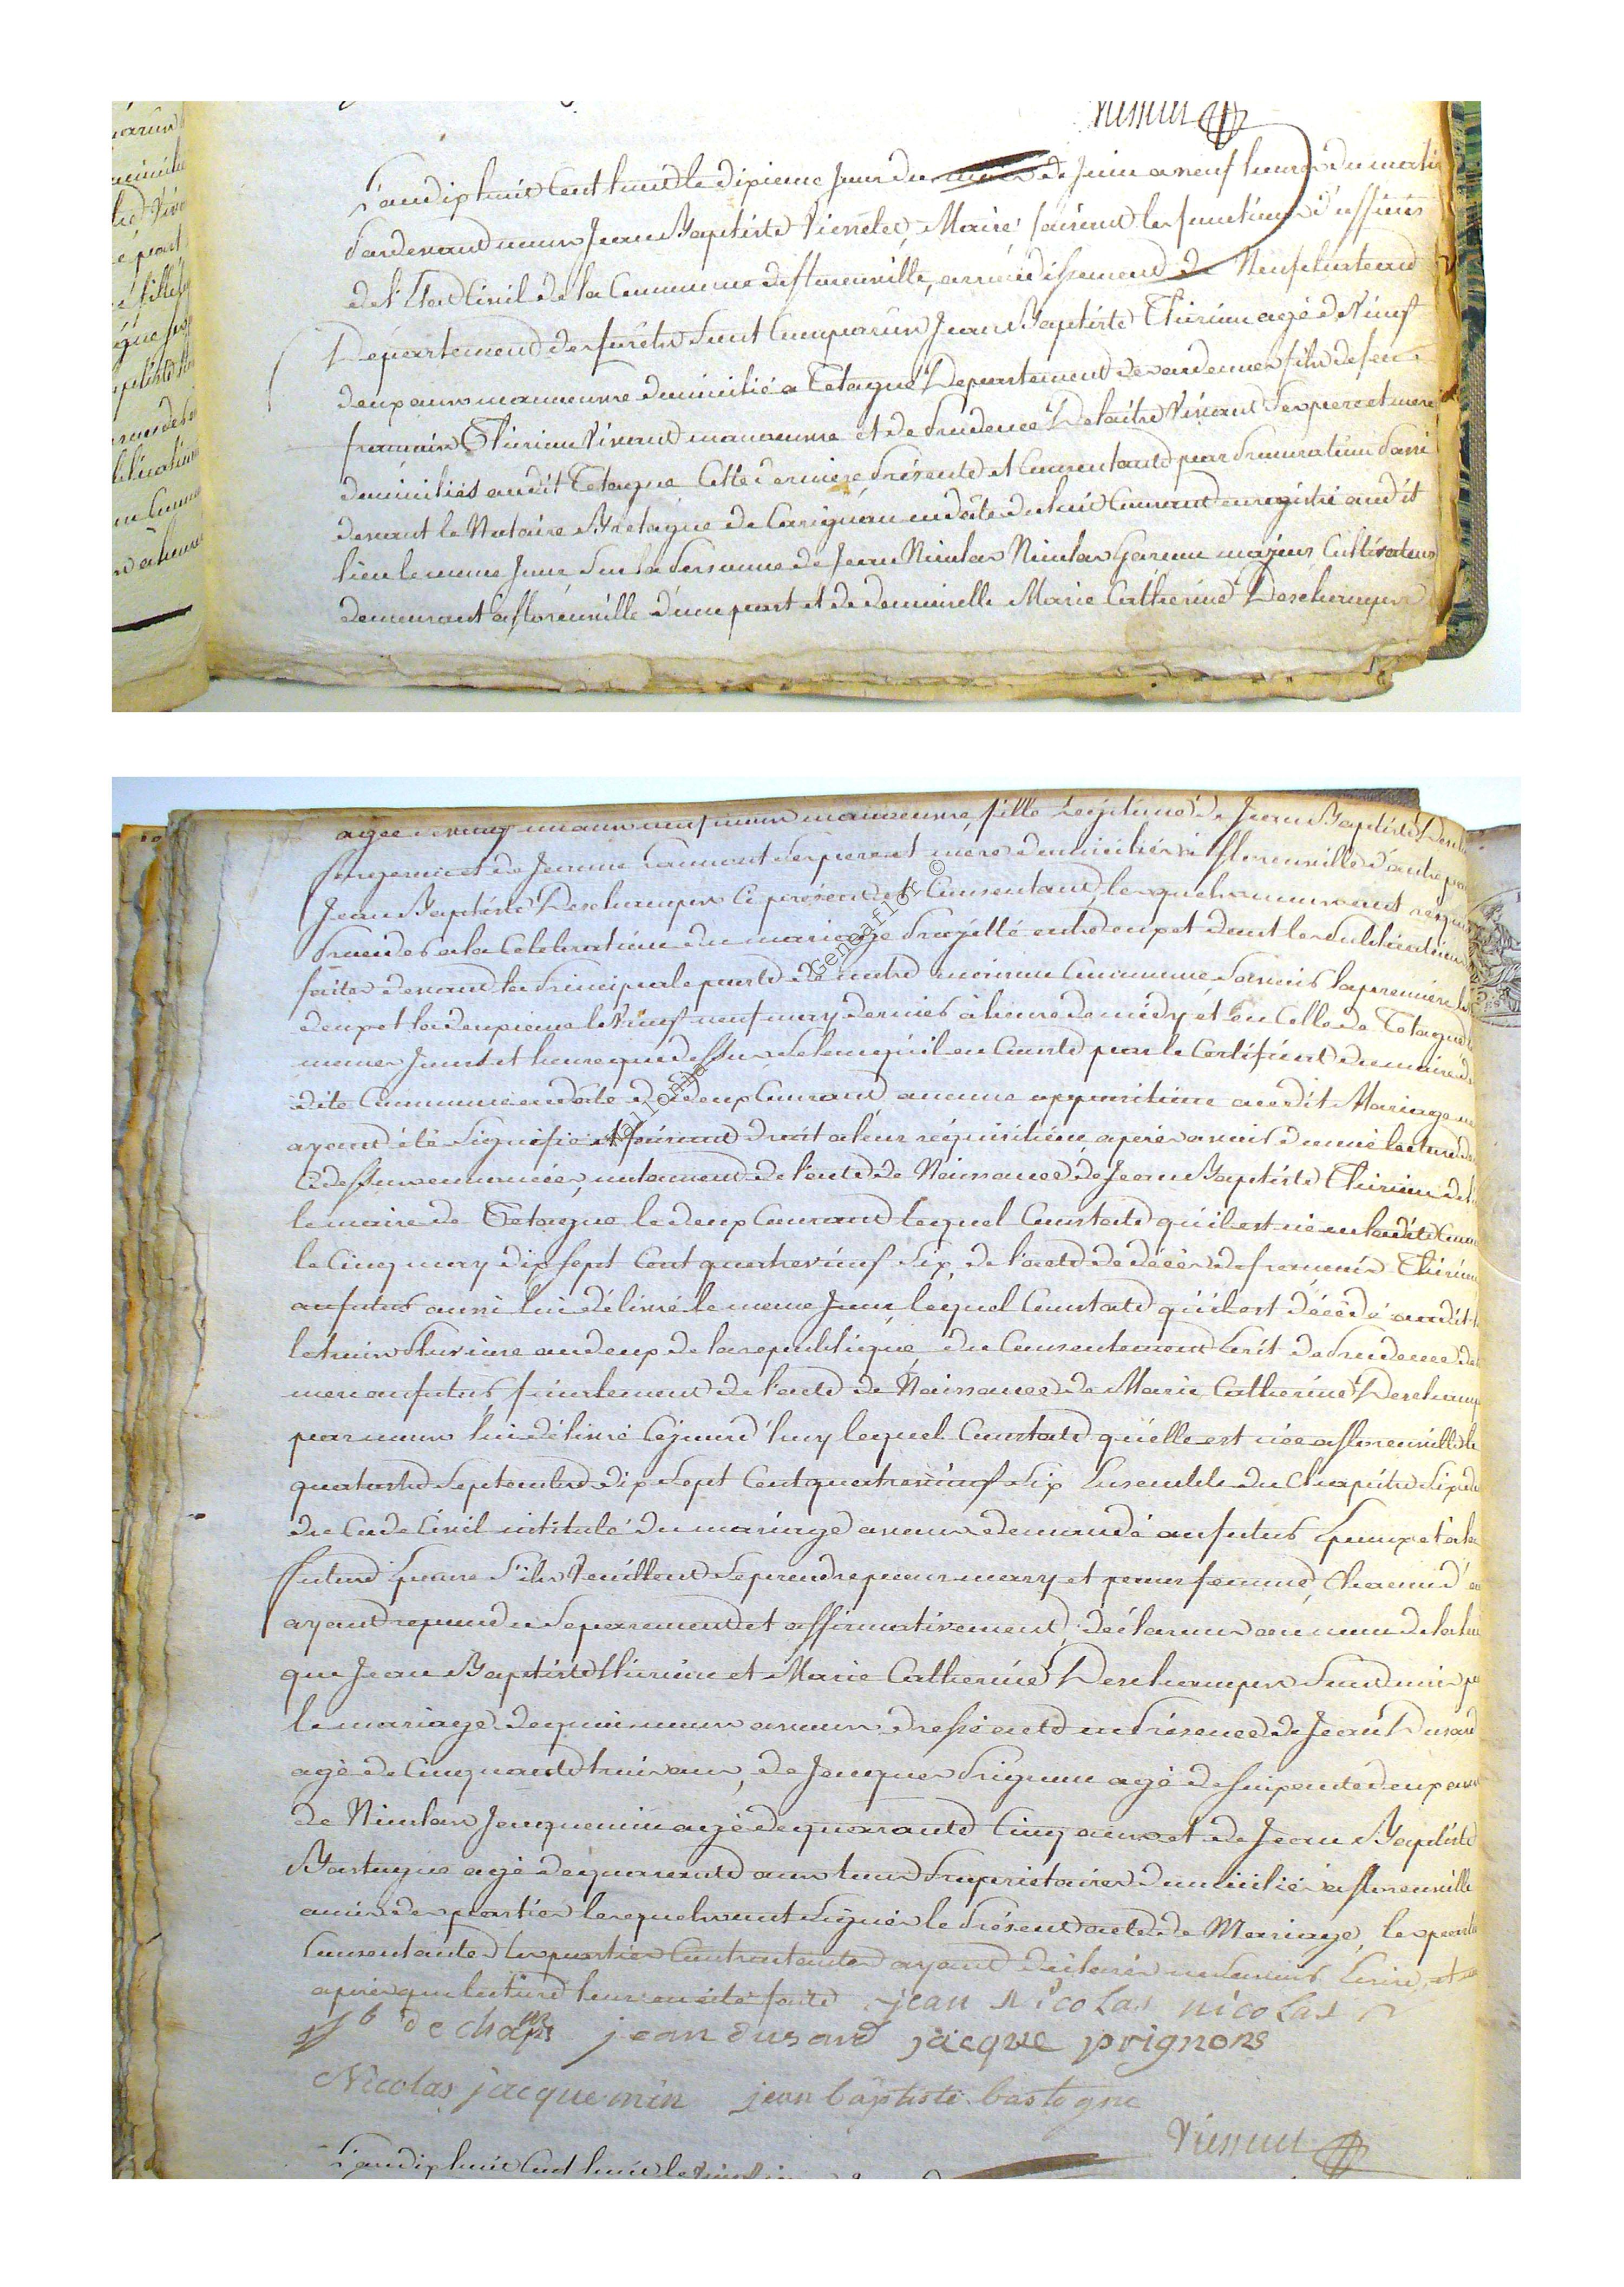 L'an dix huit Cent huit le dixieme Jour du mois de Juin a neuf heures du matin
Pardevant nous Jean Baptiste Viesselet, Maire faisant les fonctions d'officier
de l'Etat Civil de la Commune de florenville, arrondissement de Neufchateau
Departement des forêts Sont Comparus Jean Baptiste Thirion agé de Vingt
deux ans manoeuvre domicilié a Tetagne Departement des ardennes fils de feu
francois Thirion Vivant manoeuvre et de Prudence Delaitre Vivant Ses pere et mere
domiciliés audit Tetagne Cette derniere Présente et Consentante par Procuration Passé
devant le Notaire Bretagne de Carignan en date du huit Courant enregistré audit
lieu le meme Jour, Sur la Personne de Jean Nicolas Nicolas Garcon majeur Cultivateur
demeurant a florenville d'une part et de demoiselle Marie Catherine Deschamps
agée de vingt un ans neuf mois manoeuvre, fille Legitime de Jean Baptiste
et de Jeanne Ses pere et mere domiciliés a florenville d'autre part
Jean Baptiste Deschamps Ci présent et Consentant, lesquels nous ont requis
Proceder a la Celebration du mariage Projetté entre eux et dont les Publications
faites devant la Principale porte de notre maison Commune, Savoir la premiere le
deux et la deuxieme le Vingt neuf may dernier à heure de midy et en Celle de Tetagne
memes Jours et heure que dessus Selon qu'il en Conste par le Certificat du maire de
dite Commune en date du deux Courant aucune opposition audit Mariage ne
ayant été Signifiée et faisant droit a leur réquisition, après avoir donné lecture des
Cidessus enoncées, notament de l'acte de Naissance de Jean Baptiste Thirion
le maire de Tetagne le deux Courant lequel Constate qu'il est né en ladite
le Cinq may dix Sept Cent quatre vingt Six, de l'acte de décès de francois Thirion
au futur aussi lui délivré le meme Jour, lequel Constate qu'il est décédé audit
le trois an deux de la republique du Consentement Ecrit de Prudence
mere au futur, finalement de l'acte de Naissance de Marie Catherine Deschamps
par nous lui délivré Cejourd'huy lequel Constate qu'elle est née a florenville le
quatorze Septembre dix Sept Cent quatre vingt Six Ensemble du Chapitre Six
du Code Civil intitulé du mariage avons demandé au futur Epoux et a la
future Epouse S'ils Veuillent Se prendre pour mary et pour femme, Chacun d'eux
ayant repondu Separement et affirmativement, déclarons au nom de la loi
que Jean Baptiste Thirion et Marie Catherine Deschamps Sont unis par
le mariage, de quoi nous avons dressé acte en Présence de Jean Dusard
agé de Cinquante trois ans, de Jacques Prignon agé de Soixante deux ans
de Nicolas Jacquemin agé de quarante Cinq ans et de Jean Baptiste
Bastogne agé de quarante ans tous Proprietaires domiciliés a florenville
amis des parties lesquels ont Signés le Présent acte de Mariage,
Consentante les parties Contractantes ayant déclarés ne Savoir Ecrire, et
après que lecture leur en été faite jean nicolas nicolas
jb dechamps jean dusard jacque prignons
Nicolas jacquemin jean baptiste bastogne
L'an dix huit Cent huit le
Geneaflor ©